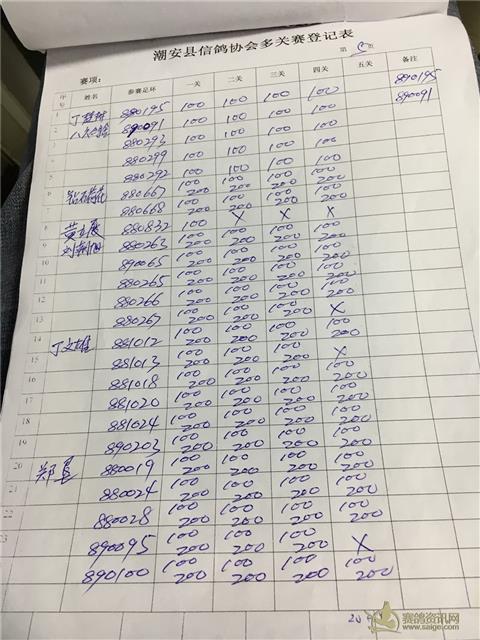 潮安县信鸽协会多关赛登记表
赛项： 第 页
序号 姓名 参赛足环 一关 二关 三关 四关 五关 备注
1 880195 100 100 100 100 890195
2 890091 100 100 100 100 890091
3 880293 100 100 100 100
4 880299 100 100 100 100
5 880292 100 100 100 100
6 880667 100 200 100 200 100 200 100 200
7 880668 100 200 100 200 100 200 100 200
8 880832 100 X X X
9 880263 100 200 100 200 100 200 100 200
10 890065 100 200 100 200 100 200 100 200
11 880265 100 200 100 200 100 200 100 200
12 880266 100 200 100 200 100 200 100 200
13 880267 100 200 100 200 100 200 X
14 丁文雄 881012 100 200 100 200 100 200 100 200
15 881013 100 200 100 200 100 200 X
16 881018 100 200 100 200 100 200 100 200
17 881020 100 200 100 200 100 200 100 200
18 881024 100 200 100 200 100 200 100 200
19 890203 100 200 100 200 100 200 100 200
20 880019 100 200 100 200 100 200 100 200
21 880024 100 200 100 200 100 200 100 200
22 880028 100 200 100 200 100 200 100 200
23 890095 100 200 100 200 100 200 X
890100 100 200 100 200 100 200 100 200
赛鸽资讯网
www.saige.com